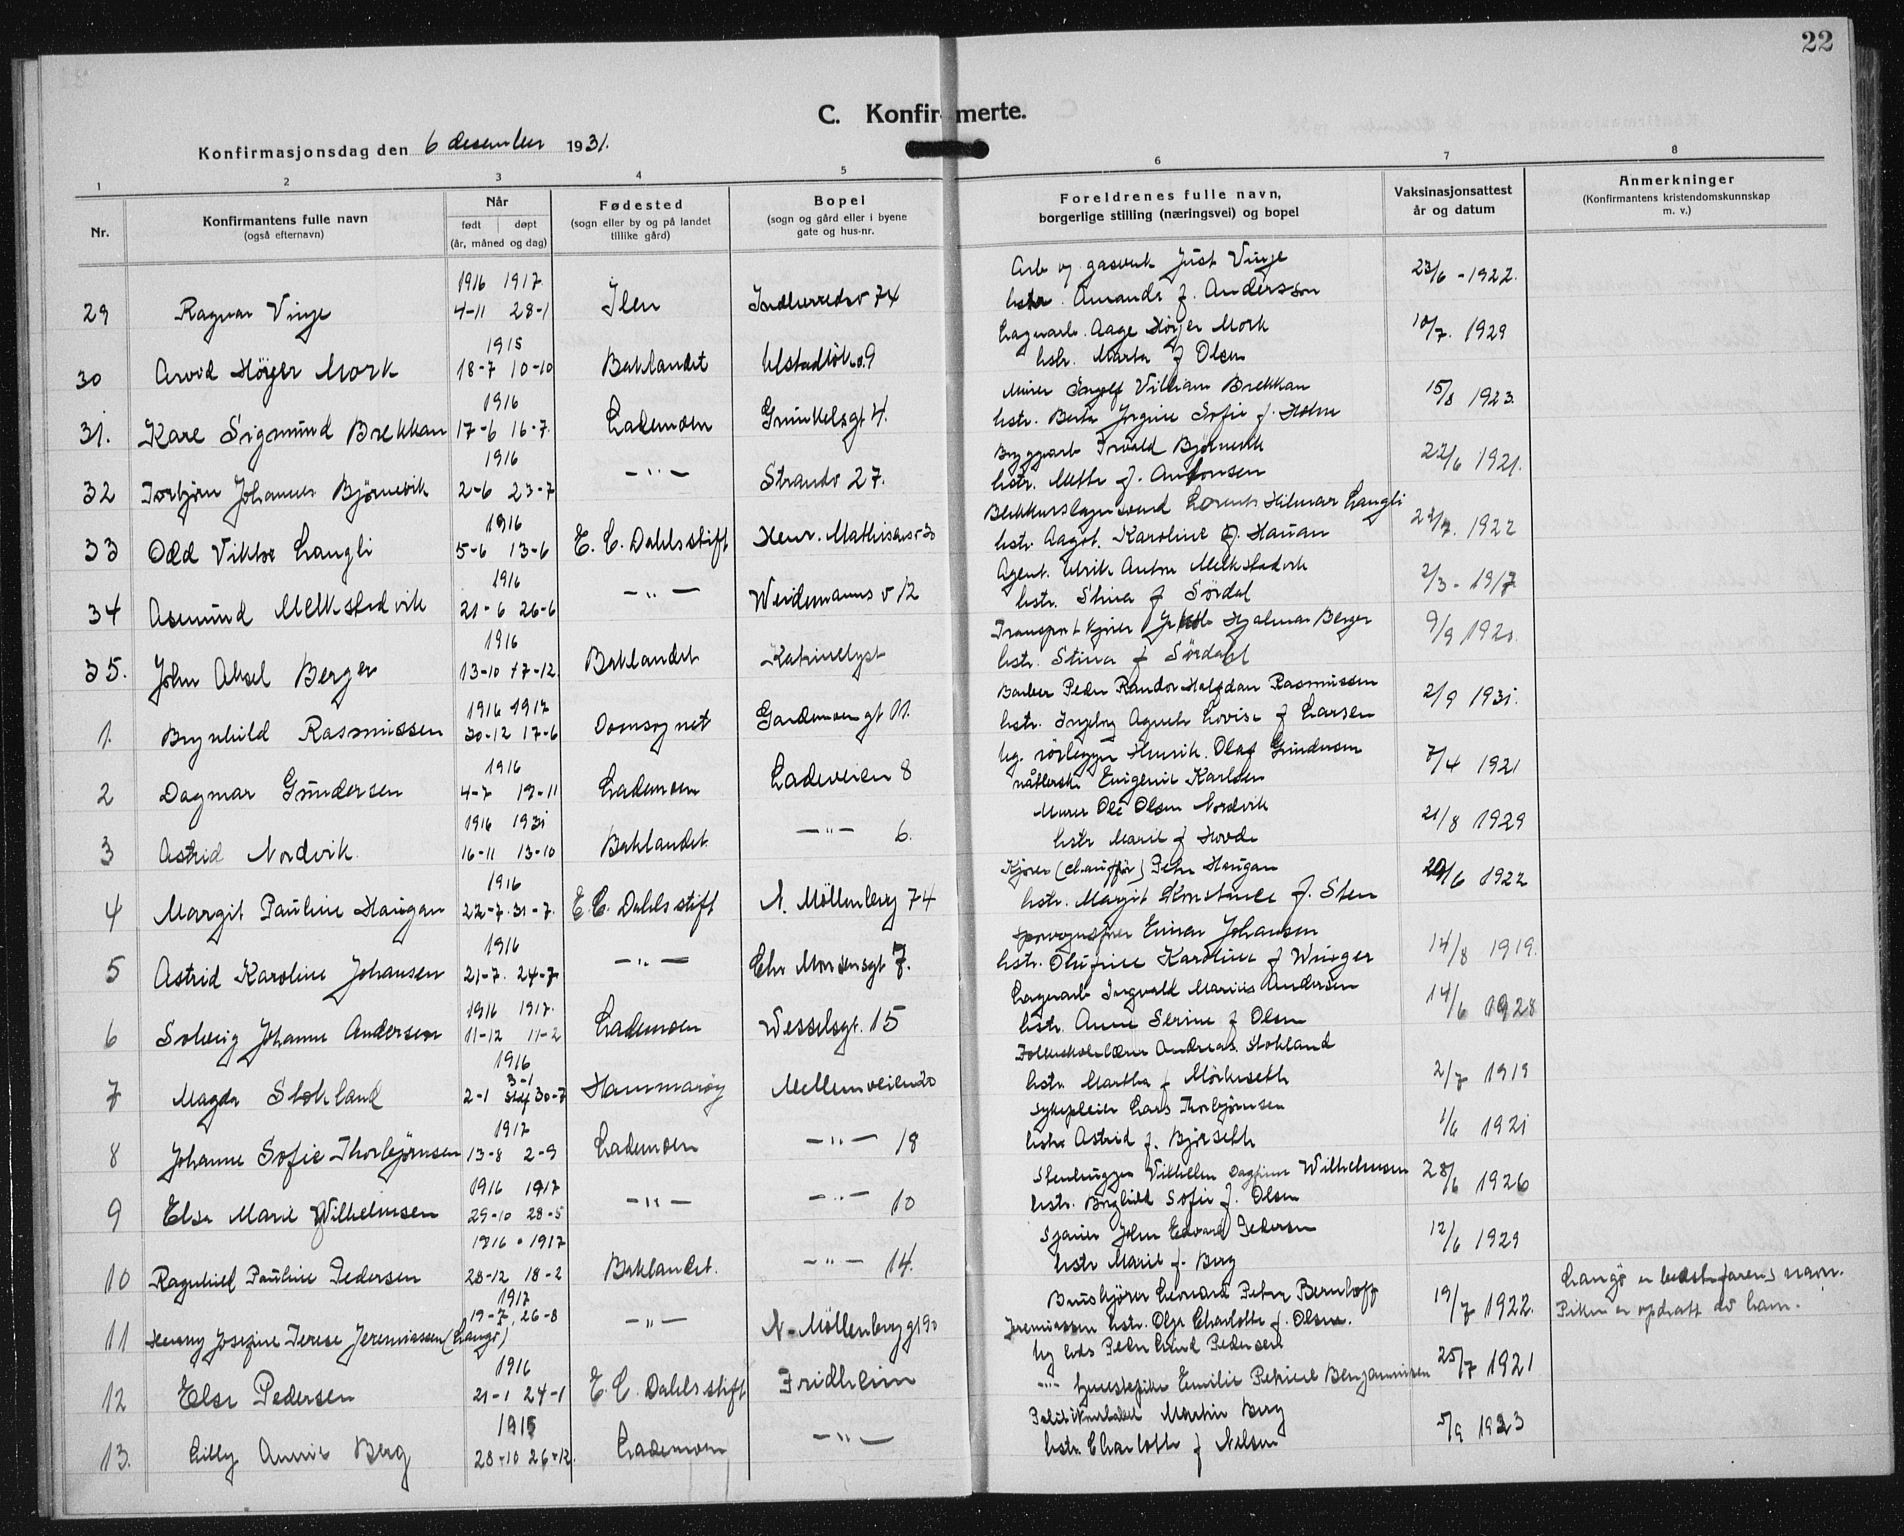 22
C. Konfirmerte.
Konfirmasjonsdag den 6 desember 1931.
1 2 3 4 5 6 7 8
Nr.
Konfirmantens fulle navn
(også efternavn)
Når
født døpt
(år, måned og dag)
Fødested
(sogn eller by og på landet
tillike gård)
Bopel
(sogn og gård eller i byene
gate og hus-nr.
Foreldrenes fulle navn,
borgerlige stilling (næringsvei) og bopel
Vaksinasjonsattest
år og datum
Anmerkninger
(Konfirmantens kristendomskunnskap
m. v.)
1916 1917 Arb. v. gasverk Just Vinje
29 Ragnar Vinje 4-11 28-1 Ilen Indherredsv 74 hstr. Amanda f. Anderssen 23/6 - 1922.
1915 Lagerarb. Aage Höyer Mork
30 Arvid Höyer Mork 18-7 10-10 Baklandet 9 hstr. Marta f Olsen 10/7. 1929
1916 Murer Ingolf Vilhelm Brekkan
31. Kare Sigmund Brekkan 17-6 16-7. Lademoen Gunkelsgt 4. hstr. Berta Jørgine Sofie f. Holm 15/8 1923.
1916 Bryggearb Torvald Björnevik
32 Torbjörn Johannes Björnevik 2-6 23-7 -"- Strandv 27. hstr. Mette f. Antonsen 22/6 1921.
1916 Blikkenslagersvend Lorents Hilmar Langli
33 Odd Viktor Langli 5-6 13-6 E. C. Dahls stift Henr. Mathisens v 30 hstr. Aagot. Karoline f. Hauan 22/7. 1922
1916 Agent. Ulrik Anton Melkstadvik
34 Asmund Melkstadvik 21-6 26-6 -"- Weidemanns v 12 hstr. Stina f Sördal 2/3 - 1917.
1916 Transportkjører Hjalmar Berger
35. John Aksel Berger 13-10 17-12. Baklandet Katrinelyst hstr. Stina f Sørdahl 9/9 1920.
1916 1917 Barber Peder Randor Halfdan Rasmussen
1. Brynhild Rasmussen 30-12 17-6 Domsognet Gardemoensgt 11. hstr. Ingeborg Agnete Lovise f Larsen 2/9 1931.
1916 Ug. rørlegger Henrik. Olaf Gundersen
2 Dagmar Gundersen 4-7 19-11 Lademoen Ladeveien 8 nåtlerske Eugenie Karlsen 7/4 1921
1916 1931 Murer Ole Olsen Nordvik
3 Astrid Nordvik. 16-11 13-10 Baklandet. -"- 6. hstr Marie f Hovde 21/8 1929
1916 Kjører (chauffør) Peter Haugan
4 Margit Pauline Haugan 22-7. 31-7. E. C. Dahls stift N. Möllenberg 74 hstr. Margit Konstance f. Sten 29/6 1922
1916 Sporvognsfører Einar Johansen
5 Astrid Karoline Johansen 21-7. 24-7- -"- Chr Monsensgt 7. hstr. Olufine Karoline f Winger 14/8 1919.
1916 1917. Lagerarb Ingvald Marius Andersen
6 Solveig Johanne Andersen 11-12 11-2 Lademoen Wesselsgt. 15 hstr. Anne Serine f Olsen 14/6 1928
1916 Folkeskolelærer Andreas. Stokland
3-1
7 Magda Stokland 2-1 30-7 Hammarøy Mellemveien 20 hstr. Martha f Mørkeseth 2/7 1919
1917 Sykepleier Lars Thorbjørnsen
8 Johanne Sofie Thorbjörnsen 13-8 2-9 Lademoen -"- 18 hstr Astrid f. Bjørseth 1/6 1921
1916 1917 Stenhugger Vilhelm Dagfinn Wilhelmsen
9 Elsa Marie Wilhelmsen 29-10 28-5 -"- -"- 10 hstr. Borghild Sofie f. Olsen 28/6 1926
1916 - 1917 Sjauer John Edvard Pedersen
10 Ragnhild Pauline Pedersen 28-12 18-2 Baklandet. -"- 14. hstr Marie f. Berg 12/6 1929
1917 Buskjører Leonard Peter Bernhoff
19-7, 26-8
11 Henny Josefine Terese Jeremiassen (Langø) -"- N. Möllenberggt 90 Jeremiassen hstr. Olga Charlotte f. Olsen. 19/7 1922. Langø er bedstefarens navn. Piken er opdratt av ham.
1916 Ug Peder Pedersen
12 Else Pedersen 21-1 24-1 E. C. Dahls stift Fridheim -"- tjenestepike Emilie Petrine Benjaminsen 25/7 1921
1915 Politikonstabel Martin Berg
13. Lilly Annie Berg 28-10 26-12. Lademoen -"- hstr. Charlotte f Nilsen 5/9 1923